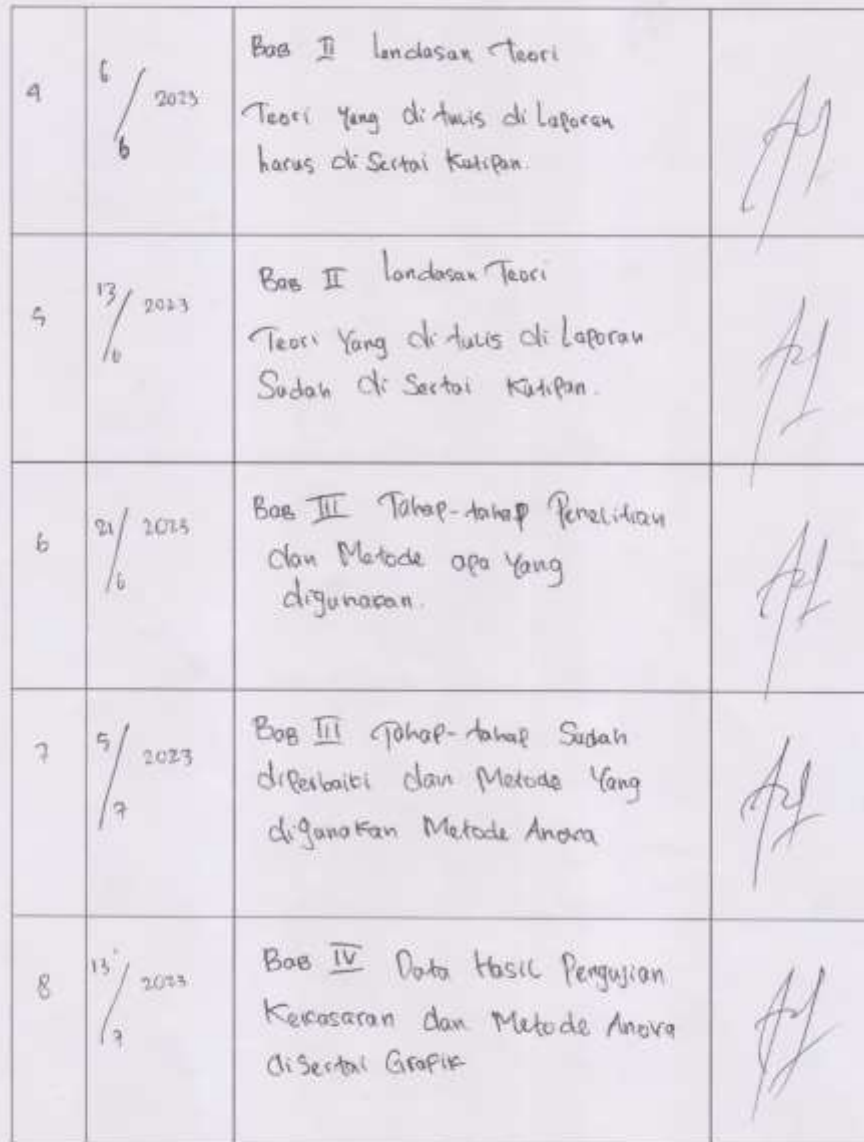 4
6/6 2023
Bab II Landasan Teori
Teori Yang di tulis di Laporan
harus di Sertai Kutipan.
5
13/6 2023
Bab II Landasan Teori
Teori Yang di tulis di Laporan
Sudah di Sertai Kutipan.
6
21/6 2023
Bab III Tahap-tahap Penelitian
dan Metode apa Yang
digunakan.
7
5/7 2023
Bab III Tahap-tahap Sudah
diperbaiki dan Metode Yang
digunakan Metode Anova
8
13/7 2023
Bab IV Data Hasil Pengujian
Kekasaran dan Metode Anova
disertai Grafik